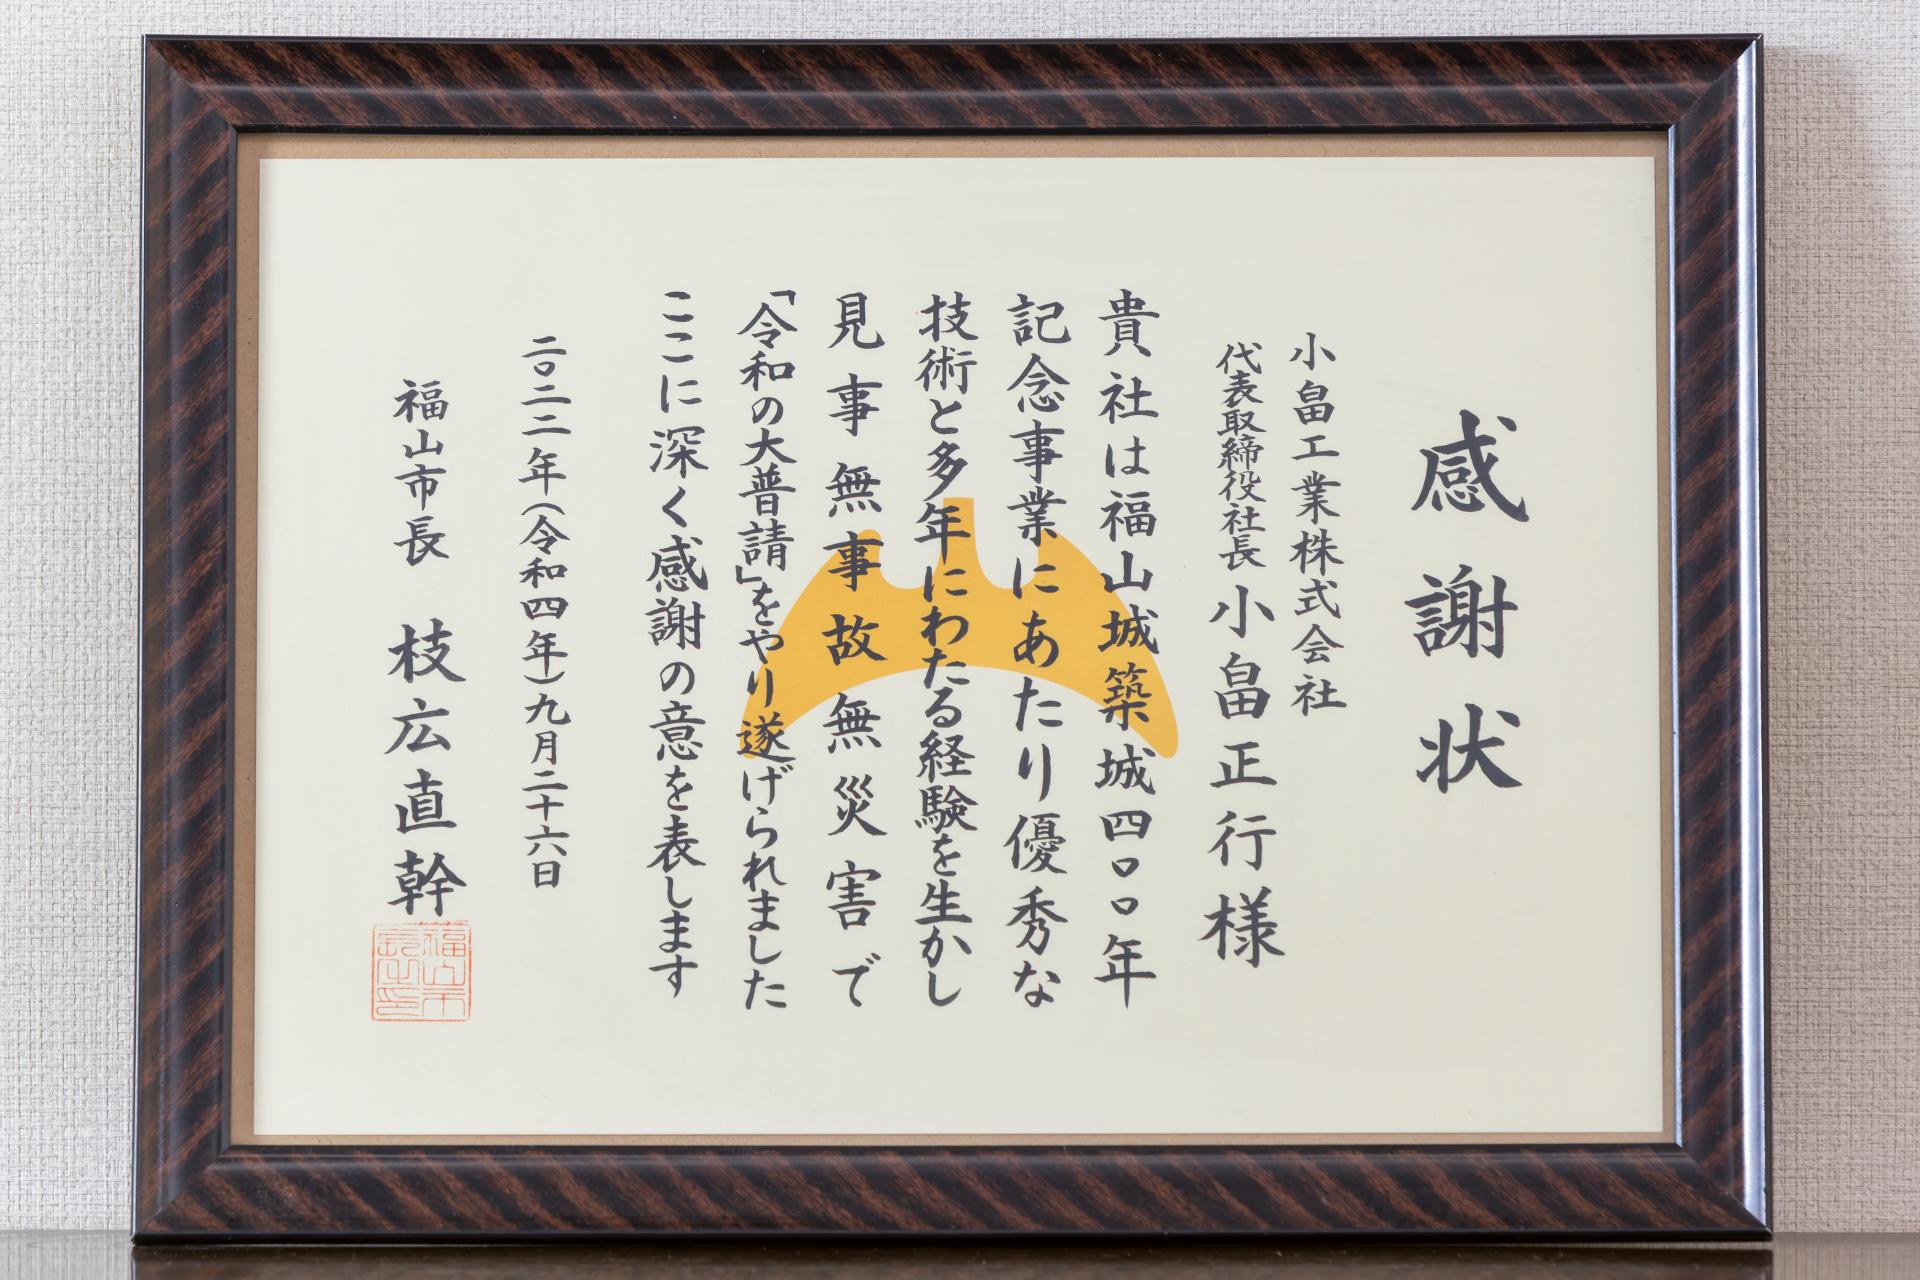 感謝状
小畠工業株式会社
代表取締役社長 小畠正行様
貴社は福山城築城四〇〇年
記念事業にあたり優秀な
技術と多年にわたる経験を生かし
見事無事故無災害で
「令和の大普請」をやり遂げられました
ここに深く感謝の意を表します
二〇二二年(令和四年)九月二十六日
福山市長 枝広直幹
福山市長之印